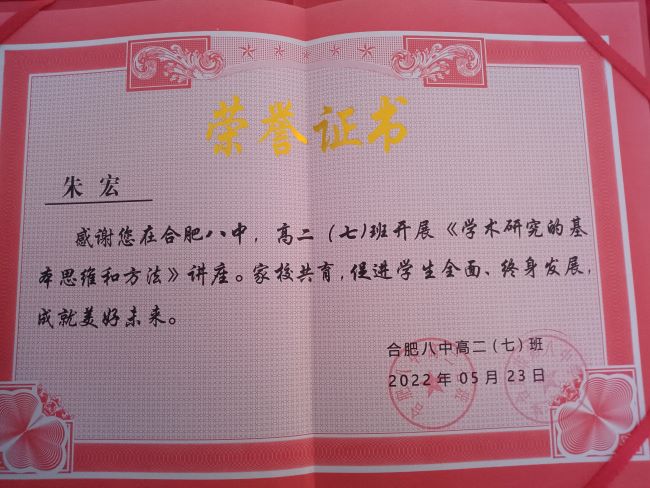 荣誉证书
朱宏
感谢您在合肥八中，高二（七）班开展《学术研究的基
本思维和方法》讲座。家校共育，促进学生全面、终身发展，
成就美好未来。
合肥八中高二（七）班
2022年05月23日